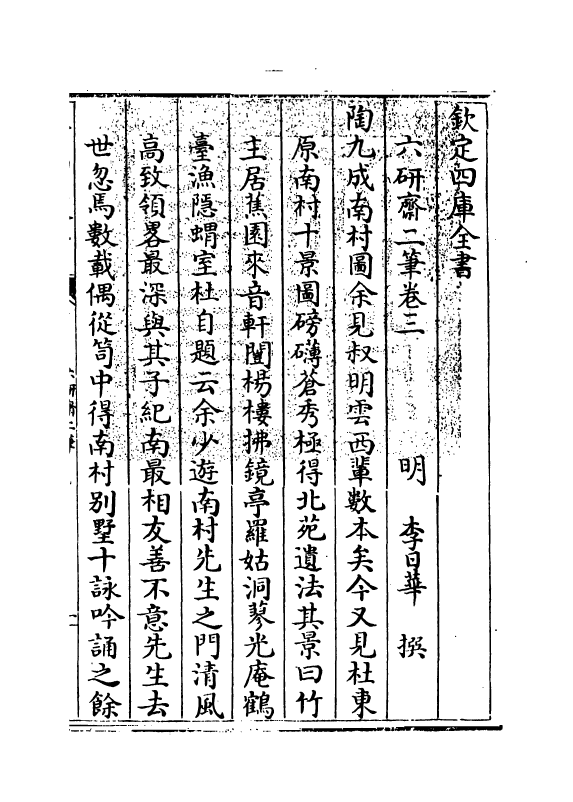 欽定四庫全書
六研齋二筆卷三
明 李日華 撰
陶九成南村圖余見叔明雲西輩數本矣今又見杜東
原南村十景圖磅礴蒼秀極得北苑遺法其景曰竹
主居蕉園來音軒闓楊樓拂鏡亭羅姑洞蓼光庵鶴
臺漁隱蝟室杜自題云余少遊南村先生之門清風
高致領畧最深與其子紀南最相友善不意先生去
世忽焉數載偶從笥中得南村别墅十詠吟誦之餘